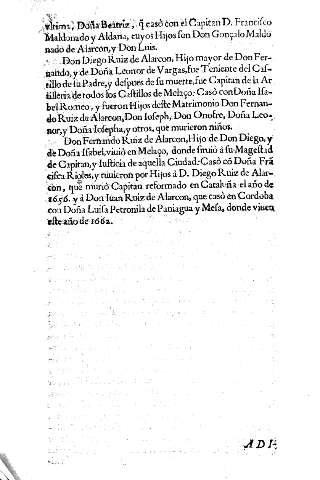 vltima, Doña Beatriz, q̃ casó con el Capitan D. Francisco
Maldonado y Aldana, cuyos Hijos son Don Gonçalo Maldo
nado de Alarcon, y Don Luis.
Don Diego Ruiz de Alarcon, Hijo mayor de Don Fer-
nando, y de Doña Leonor de Vargas, fue Teniente del Cas-
tillo de su Padre, y despues de su muerte, fue Capitan de la Ar
tilleria de todos los Castillos de Melaço: Casò con Doña Isa
bel Romeo, y fueron Hijos deste Matrimonio Don Fernan-
do Ruiz de Alarcon, Don Ioseph, Don Onofre, Doña Leo-
nor, y Doña Iosepha, y otros, que murieron niños.
Don Fernando Ruiz de Alarcon, Hijo de Don Diego, y
de Doña Isabel, viuió en Melaço, donde siruió a su Magestad
de Capitan, y Iusticia de aquella Ciudad: Casò cō Doña Frā
cisca y tuuieron por Hijos á D. Diego Ruiz de Alar-
con, que murió Capitan reformado en Cataluña el año de
1656. y á Don Iuan Ruiz de Alarcon, que casò en Cordoba
con Doña Luisa Petronila de Paniagua y Mesa, donde viuen
este año de 1662.
ADI-